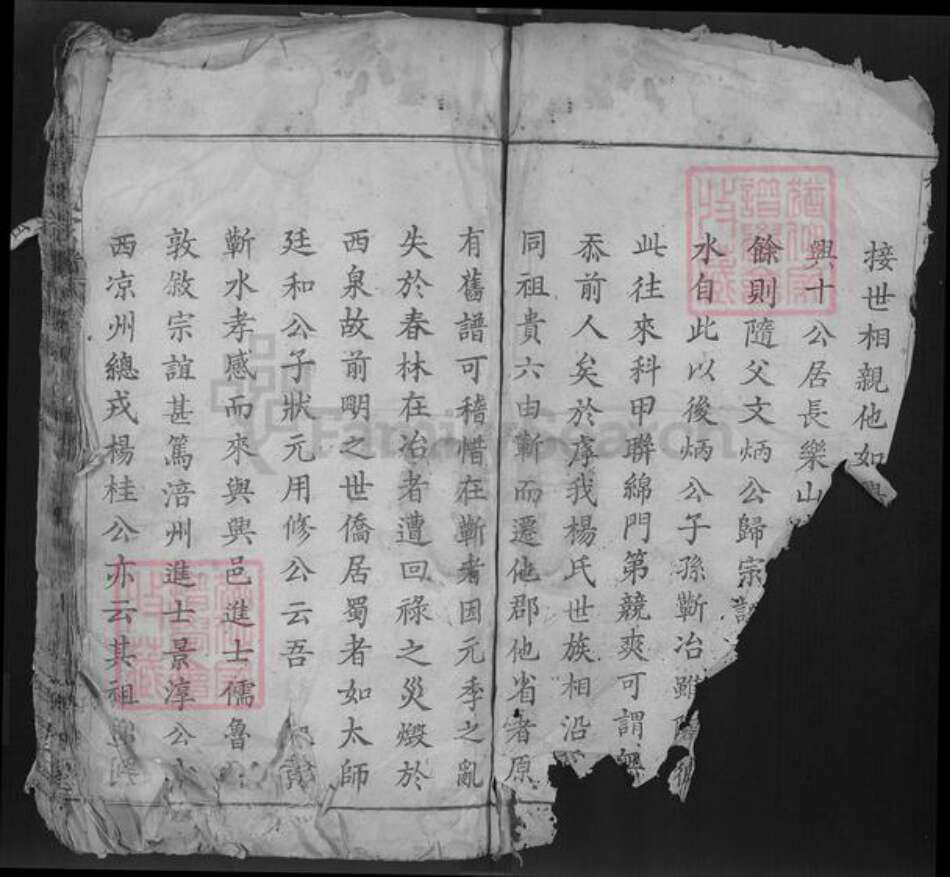 接世相親他如
興十公居長樂山
餘則隨父文炳公歸宗
水自此以後炳公子孫蘄冶雖
此往來科甲聯綿門第競爽可謂無
忝前人矣於序我楊氏世族相沿
同祖貴六由蘄而遷他郡他省者原
有舊譜可稽惜在蘄者因元季之亂
失於春林在冶者遭回祿之災燬於
西泉故前明之世僑居蜀者如太師
廷和公子狀元用修公云吾
蘄水孝感而來與興邑進士儒魯
敦敘宗誼甚篤涪州進士景淳公
西凉州總戎楊桂公亦云其祖
FamilySearch